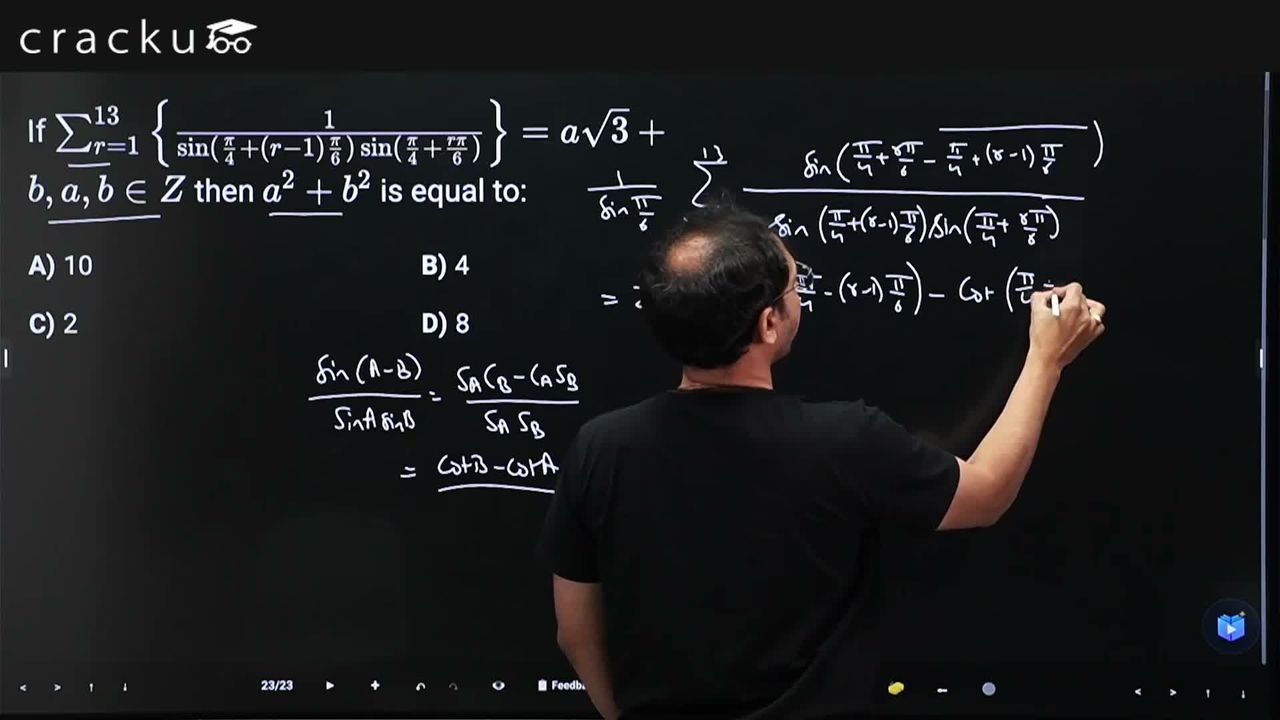 cracku
If ∑_{r=1}^{13} { 1 / (sin(π/4+(r−1)π/6) sin(π/4+rπ/6)) } = a√3 +
b, a, b ∈ Z then a² + b² is equal to:
A) 10
B) 4
C) 2
D) 8
1 / sin π/6 ∑^{13} sin(π/4+rπ/6 − π/4+(r−1)π/6) / sin(π/4+(r−1)π/6) sin(π/4+rπ/6)
= − (r−1)π/6) − Cot (π/4
sin(A−B) / sinA sinB = S_A C_B − C_A S_B / S_A S_B
= cotB − cotA
23/23
Feedb